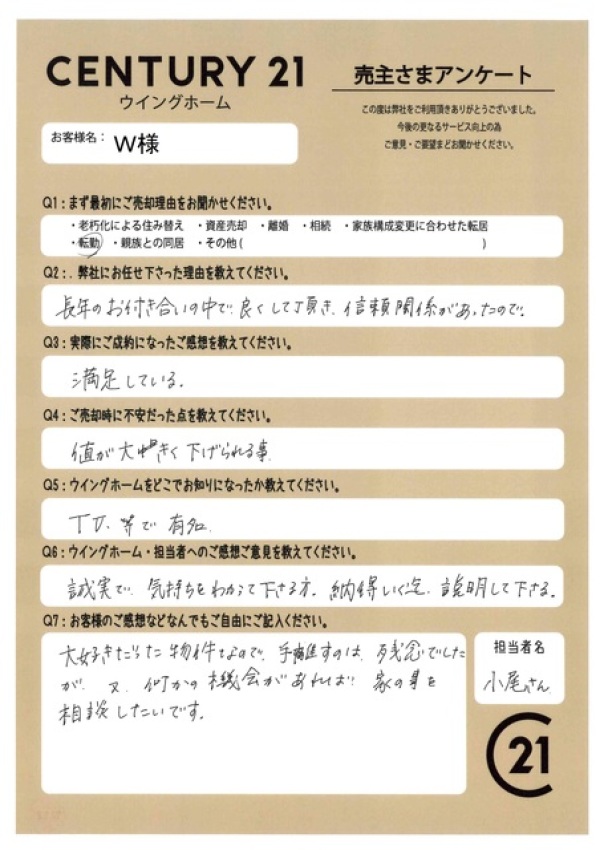 CENTURY 21
ウイングホーム
売主さまアンケート
この度は弊社をご利用頂きありがとうございました。
今後の更なるサービス向上の為
ご意見・ご要望までお聞かせください。
お客様名: W様
Q1:まず最初にご売却理由をお聞かせください。
・老朽化による住み替え ・資産売却 ・離婚 ・相続 ・家族構成変更に合わせた転居
・転勤 ・親族との同居 ・その他( )
Q2:.弊社にお任せ下さった理由を教えてください。
長年のお付き合いの中で、良くして頂き、信頼関係があったので。
Q3:実際にご成約になったご感想を教えてください。
満足している。
Q4:ご売却時に不安だった点を教えてください。
値が大きく下げられる事
Q5:ウイングホームをどこでお知りになったか教えてください。
等で有名
Q6:ウイングホーム・担当者へのご感想ご意見を教えてください。
誠実で、気持ちをわかって下さる方。納得いく迄、説明して下さる。
Q7:お客様のご感想などなんでもご自由にご記入ください。
大好きだった物件なので、手離すのは、残念でした
が、又、何かの機会があれば、家の事を
相談したいです。
担当者名
小尾さん
C21